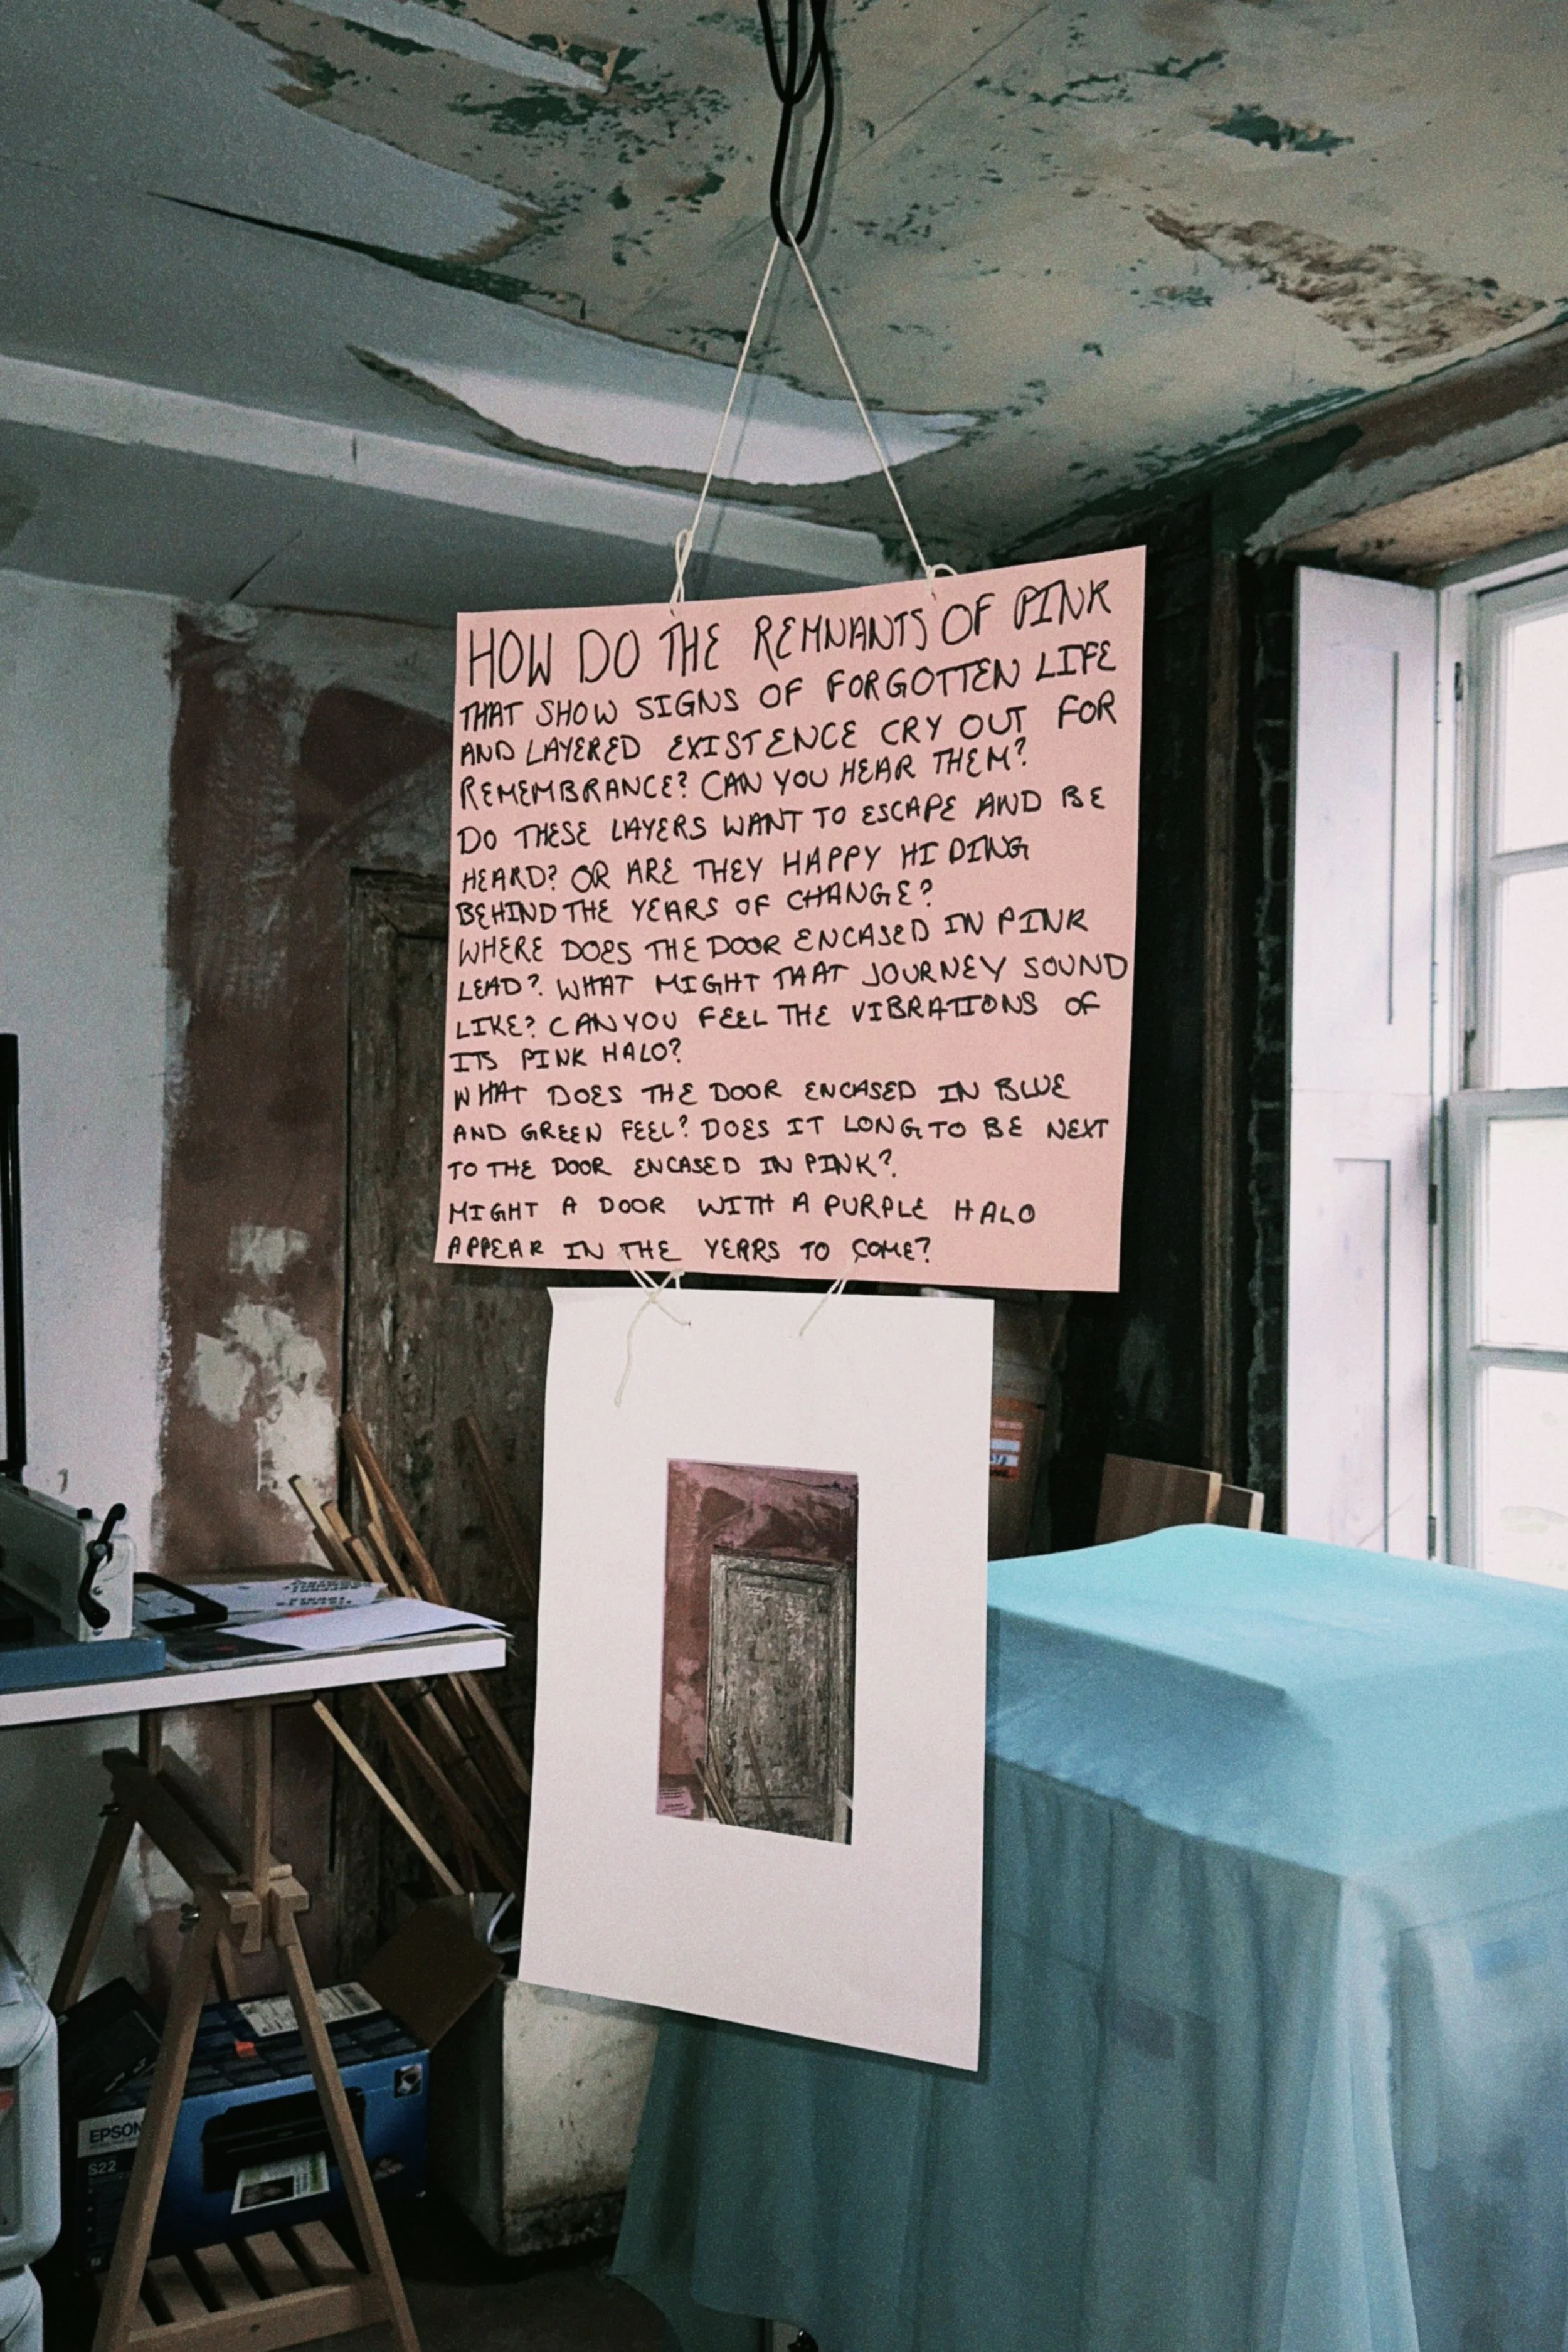 HOW DO THE REMNANTS OF PINK
THAT SHOW SIGNS OF FORGOTTEN LIFE
AND LAYERED EXISTENCE CRY OUT FOR
REMEMBRANCE? CAN YOU HEAR THEM?
DO THESE LAYERS WANT TO ESCAPE AND BE
HEARD? OR ARE THEY HAPPY HIDING
BEHIND THE YEARS OF CHANGE?
WHERE DOES THE DOOR ENCASED IN PINK
LEAD? WHAT MIGHT THAT JOURNEY SOUND
LIKE? CAN YOU FEEL THE VIBRATIONS OF
ITS PINK HALO?
WHAT DOES THE DOOR ENCASED IN BLUE
AND GREEN FEEL? DOES IT LONG TO BE NEXT
TO THE DOOR ENCASED IN PINK?
MIGHT A DOOR WITH A PURPLE HALO
APPEAR IN THE YEARS TO COME?
EPSON
S22